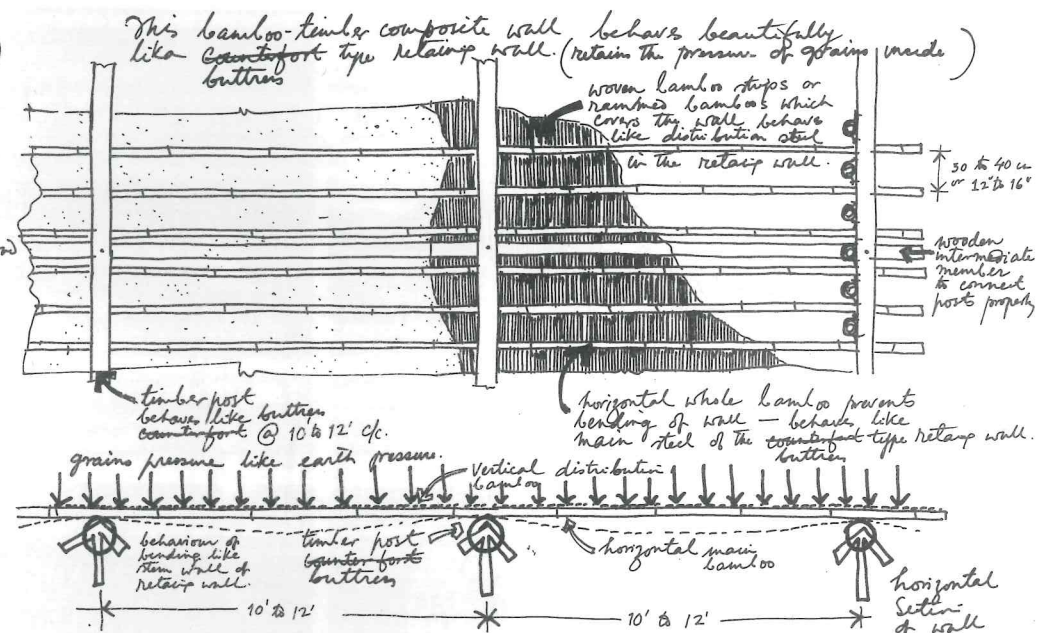 This bamboo-timber composite wall behaves beautifully
like counterfort type retaing wall. (retains the pressure of grains inside)
buttress
woven bamboo strips or
rammed bamboos which
covers the wall behave
like distribution steel
in the retaig wall.
30 to 40 cm
or 12" to 16"
wooden
intermediate
member
to connect
posts properly
timber post
behaves like buttress
counterfort @ 10' to 12' c/c.
horizontal whole bamboo prevents
bending of wall — behaves like
main steel of the counterfort type retaig wall.
buttress
grains pressure like earth pressure.
vertical distribution
bamboo
behaviour of
bending like
stem wall of
retaig wall.
timber post
counter fort
buttress
horizontal main
bamboo
10' to 12'
10' to 12'
horizontal
Section
of wall